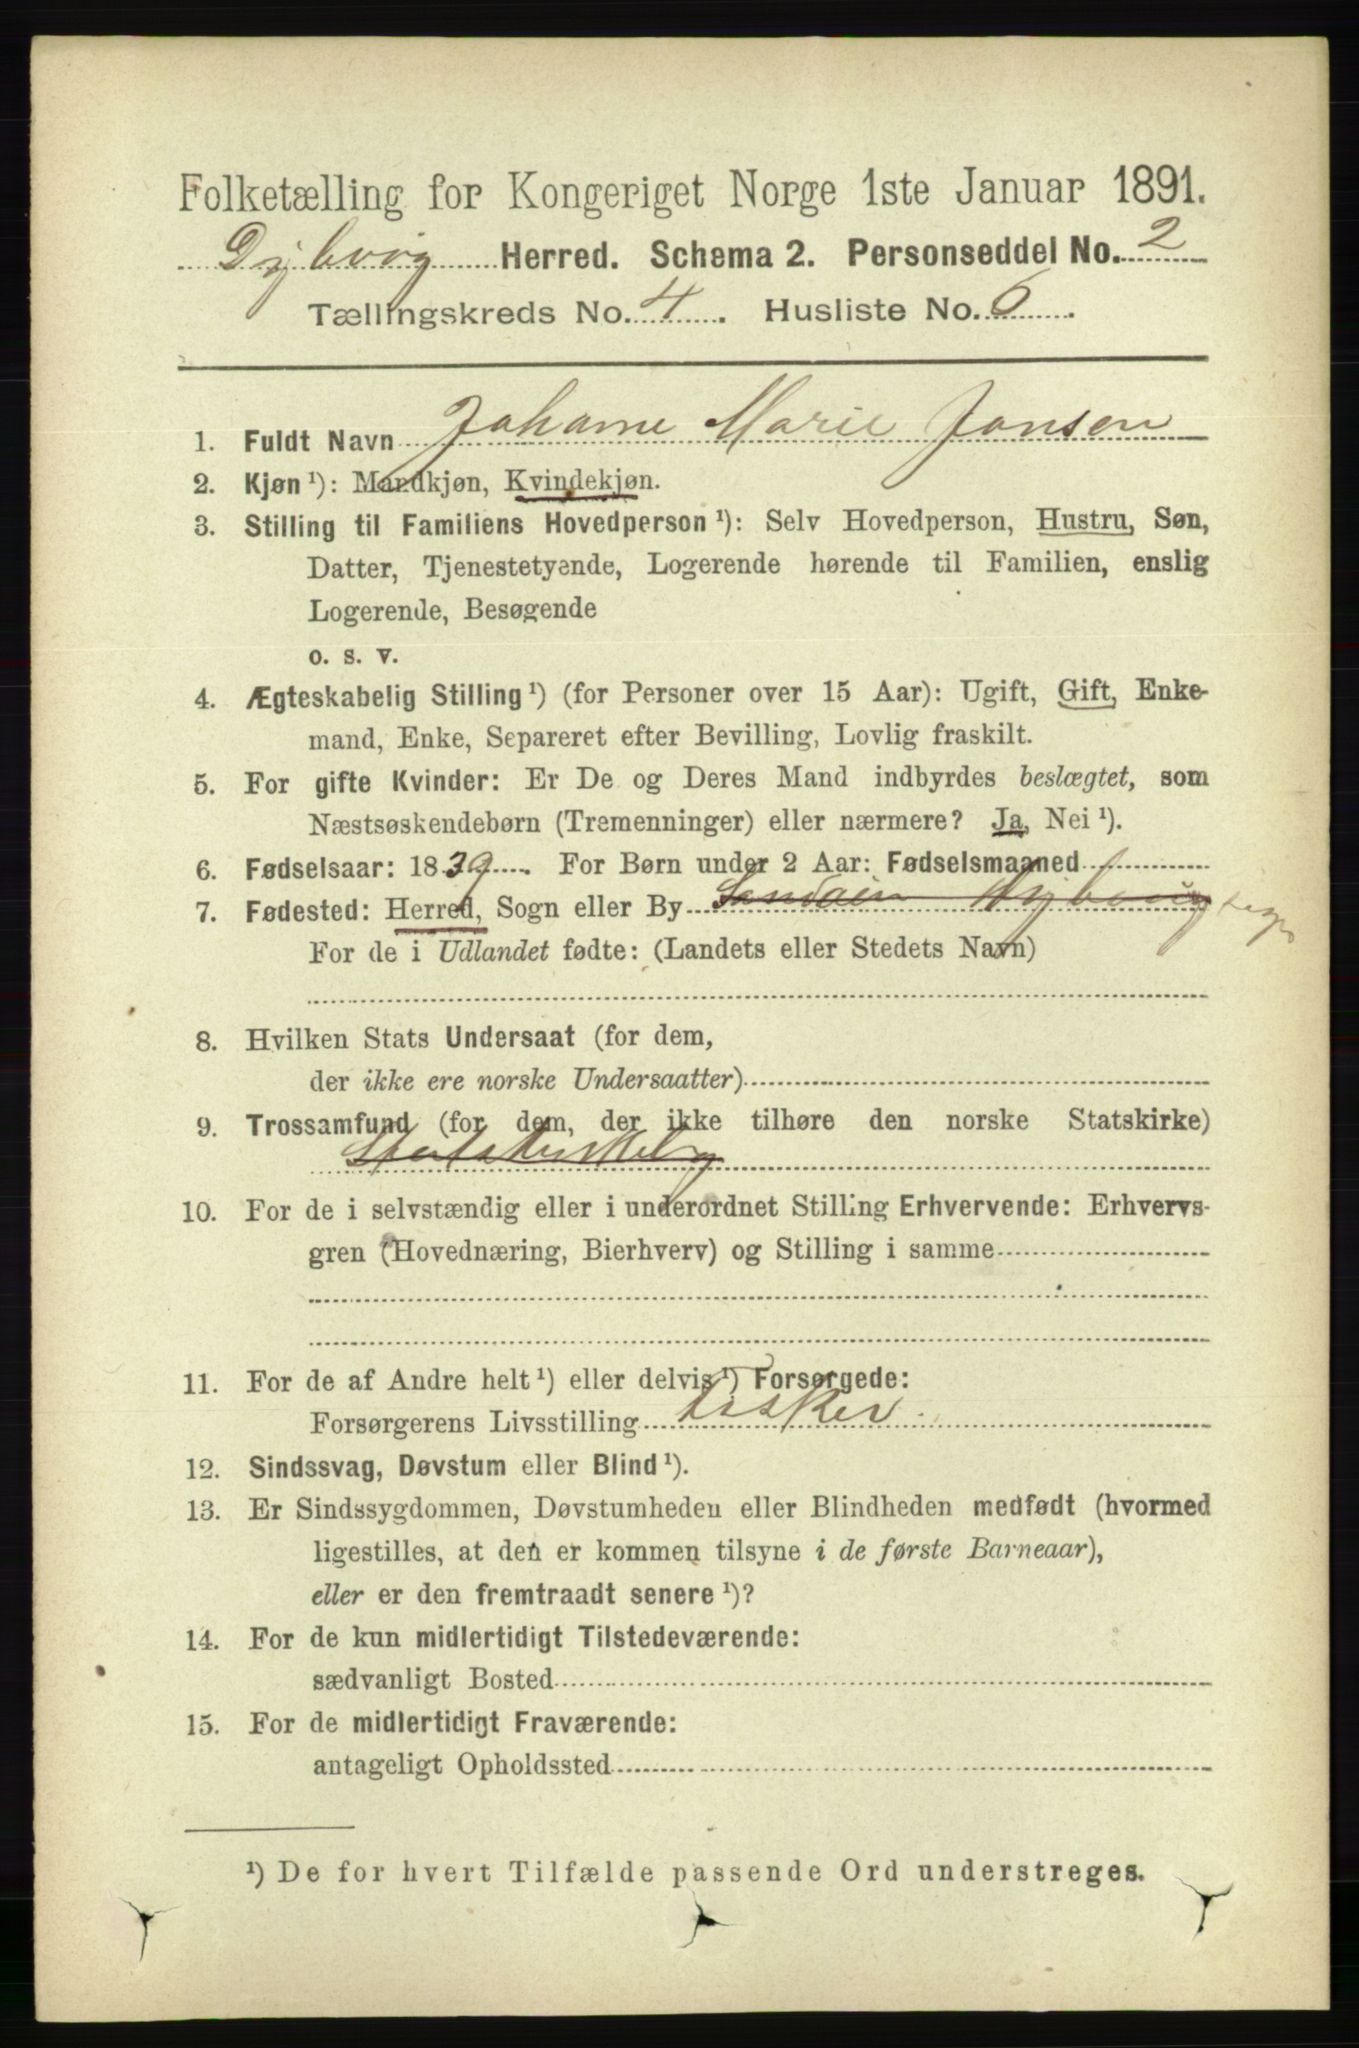 Folketælling for Kongeriget Norge 1ste Januar 1891.
Dybvåg Herred. Schema 2. Personseddel No. 2
Tællingskreds No. 4. Husliste No. 6.
1. Fuldt Navn Johanne Marie Jansen
2. Kjøn ¹): Mandkjøn, Kvindekjøn.
3. Stilling til Familiens Hovedperson ¹): Selv Hovedperson, Hustru, Søn,
Datter, Tjenestetyende, Logerende hørende til Familien, enslig
Logerende, Besøgende
o. s. v.
4. Ægteskabelig Stilling ¹) (for Personer over 15 Aar): Ugift, Gift, Enke-
mand, Enke, Separeret efter Bevilling, Lovlig fraskilt.
5. For gifte Kvinder: Er De og Deres Mand indbyrdes beslægtet, som
Næstsøskendebørn (Tremenninger) eller nærmere? Ja, Nei ¹).
6. Fødselsaar: 1839. For Børn under 2 Aar: Fødselsmaaned
7. Fødested: Herred, Sogn eller By
For de i Udlandet fødte: (Landets eller Stedets Navn)
8. Hvilken Stats Undersaat (for dem,
der ikke ere norske Undersaatter)
9. Trossamfund (for dem, der ikke tilhøre den norske Statskirke)
10. For de i selvstændig eller i underordnet Stilling Erhvervende: Erhvervs-
gren (Hovednæring, Bierhverv) og Stilling i samme
11. For de af Andre helt ¹) eller delvis ¹) Forsørgede:
Forsørgerens Livsstilling Fisker.
12. Sindssvag, Døvstum eller Blind ¹).
13. Er Sindssygdommen, Døvstumheden eller Blindheden medfødt (hvormed
ligestilles, at den er kommen tilsyne i de første Barneaar),
eller er den fremtraadt senere ¹)?
14. For de kun midlertidigt Tilstedeværende:
sædvanligt Bosted
15. For de midlertidigt Fraværende:
antageligt Opholdssted
¹) De for hvert Tilfælde passende Ord understreges.